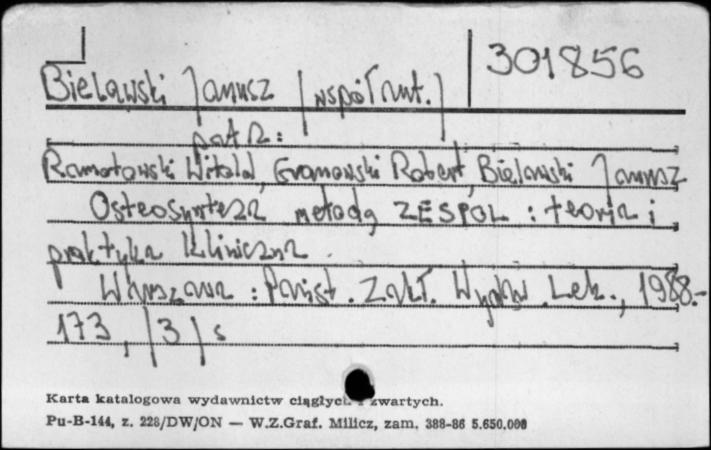 301856
Bielawski Janusz (współaut.)
patrz:
Ramotowski Witold, Granowski Robert, Bielawski Janusz
Osteosynteza metodą ZESPOL : teoria i
praktyka kliniczna
Warszawa : Państ. Zakł. Wydaw. Lek., 1988.-
173, |3| s
Karta katalogowa wydawnictw ciągłych i zwartych.
Pu-B-144, z. 228/DW/ON — W.Z.Graf. Milicz, zam. 388-86 5.650.000